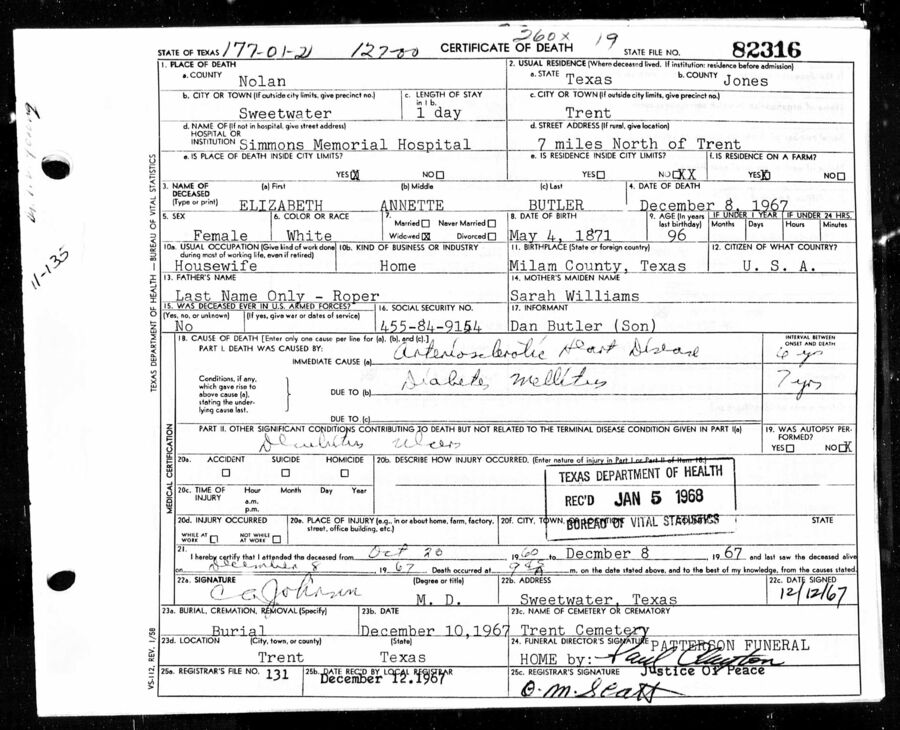 260x 19
STATE OF TEXAS 177-01-21 127-00 CERTIFICATE OF DEATH STATE FILE NO. 82316
1. PLACE OF DEATH 2. USUAL RESIDENCE (Where deceased lived. If institution: residence before admission)
a. COUNTY a. STATE Texas b. COUNTY Jones
Nolan
b. CITY OR TOWN (If outside city limits, give precinct no.) c. LENGTH OF STAY in 1 b. c. CITY OR TOWN (If outside city limits, give precinct no.)
Sweetwater 1 day Trent
d. NAME OF (If not in hospital, give street address) d. STREET ADDRESS (If rural, give location)
HOSPITAL OR
INSTITUTION Simmons Memorial Hospital 7 miles North of Trent
e. IS PLACE OF DEATH INSIDE CITY LIMITS? e. IS RESIDENCE INSIDE CITY LIMITS? f. IS RESIDENCE ON A FARM?
YES X NO YES NO XX YES X NO
3. NAME OF DECEASED (Type or print) (a) First (b) Middle (c) Last 4. DATE OF DEATH
ELIZABETH ANNETTE BUTLER December 8, 1967
5. SEX 6. COLOR OR RACE 7. Married Never Married 8. DATE OF BIRTH 9. AGE (In years last birthday) IF UNDER 1 YEAR IF UNDER 24 HRS.
Months Days Hours Minutes
Female White Widowed X Divorced May 4, 1871 96
10a. USUAL OCCUPATION (Give kind of work done during most of working life, even if retired) 10b. KIND OF BUSINESS OR INDUSTRY 11. BIRTHPLACE (State or foreign country) 12. CITIZEN OF WHAT COUNTRY?
Housewife Home Milam County, Texas U. S. A.
13. FATHER'S NAME 14. MOTHER'S MAIDEN NAME
Last Name Only - Roper Sarah Williams
15. WAS DECEASED EVER IN U.S. ARMED FORCES? 16. SOCIAL SECURITY NO. 17. INFORMANT
(Yes, no, or unknown) (If yes, give war or dates of service)
No 455-84-9154 Dan Butler (Son)
18. CAUSE OF DEATH [Enter only one cause per line for (a), (b), and (c).] INTERVAL BETWEEN ONSET AND DEATH
PART I. DEATH WAS CAUSED BY:
IMMEDIATE CAUSE (a) Arteriosclerotic Heart Disease 6 yrs
Conditions, if any, which gave rise to above cause (a), stating the underlying cause last. DUE TO (b) Diabetes Mellitus 7 yrs
DUE TO (c)
PART II. OTHER SIGNIFICANT CONDITIONS CONTRIBUTING TO DEATH BUT NOT RELATED TO THE TERMINAL DISEASE CONDITION GIVEN IN PART I(a) 19. WAS AUTOPSY PERFORMED?
Decubitus Ulcers YES NO X
20a. ACCIDENT SUICIDE HOMICIDE 20b. DESCRIBE HOW INJURY OCCURRED. (Enter nature of injury in Part I or Part II of Item 18.)
TEXAS DEPARTMENT OF HEALTH
REC'D JAN 5 1968
BUREAU OF VITAL STATISTICS
20c. TIME OF INJURY Hour Month Day Year
a.m.
p.m.
20d. INJURY OCCURRED 20e. PLACE OF INJURY (e.g., in or about home, farm, factory, street, office building, etc.) 20f. CITY, TOWN, STATE
WHILE AT WORK NOT WHILE AT WORK
21. I hereby certify that I attended the deceased from Oct 20 1960 to Decmber 8 1967 and last saw the deceased alive
on December 8 1967 Death occurred at m. on the date stated above, and to the best of my knowledge, from the causes stated.
22a. SIGNATURE (Degree or title) 22b. ADDRESS 22c. DATE SIGNED
C A Johnson M. D. Sweetwater, Texas 12/12/67
23a. BURIAL, CREMATION, REMOVAL (Specify) 23b. DATE 23c. NAME OF CEMETERY OR CREMATORY
Burial December 10,1967 Trent Cemetery
23d. LOCATION (City, town, or county) (State) 24. FUNERAL DIRECTOR'S SIGNATURE PATTERSON FUNERAL
Trent Texas HOME by: Paul Clayton
25a. REGISTRAR'S FILE NO. 131 25b. DATE REC'D BY LOCAL REGISTRAR December 12.1967 25c. REGISTRAR'S SIGNATURE Justice Of Peace
O. M. Scott
TEXAS DEPARTMENT OF HEALTH — BUREAU OF VITAL STATISTICS
MEDICAL CERTIFICATION
VS-112, REV. 1/58
11-135